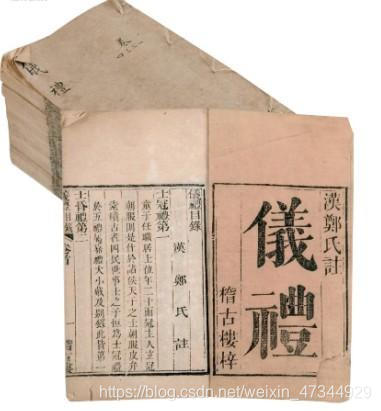 儀禮
漢鄭氏註
儀禮
稽古樓梓
儀禮目錄
漢 鄭氏註
士冠禮第一
童子任職居士位年二十而冠主人玄冠
朝服則是仕於諸侯天子之士朝服皮弁
素積古者四民世事士之子恒為士冠禮
於五禮屬嘉禮大小戴及別錄此皆第一
士昏禮第二
儀禮目錄
https://blog.csdn.net/weixin_47344929